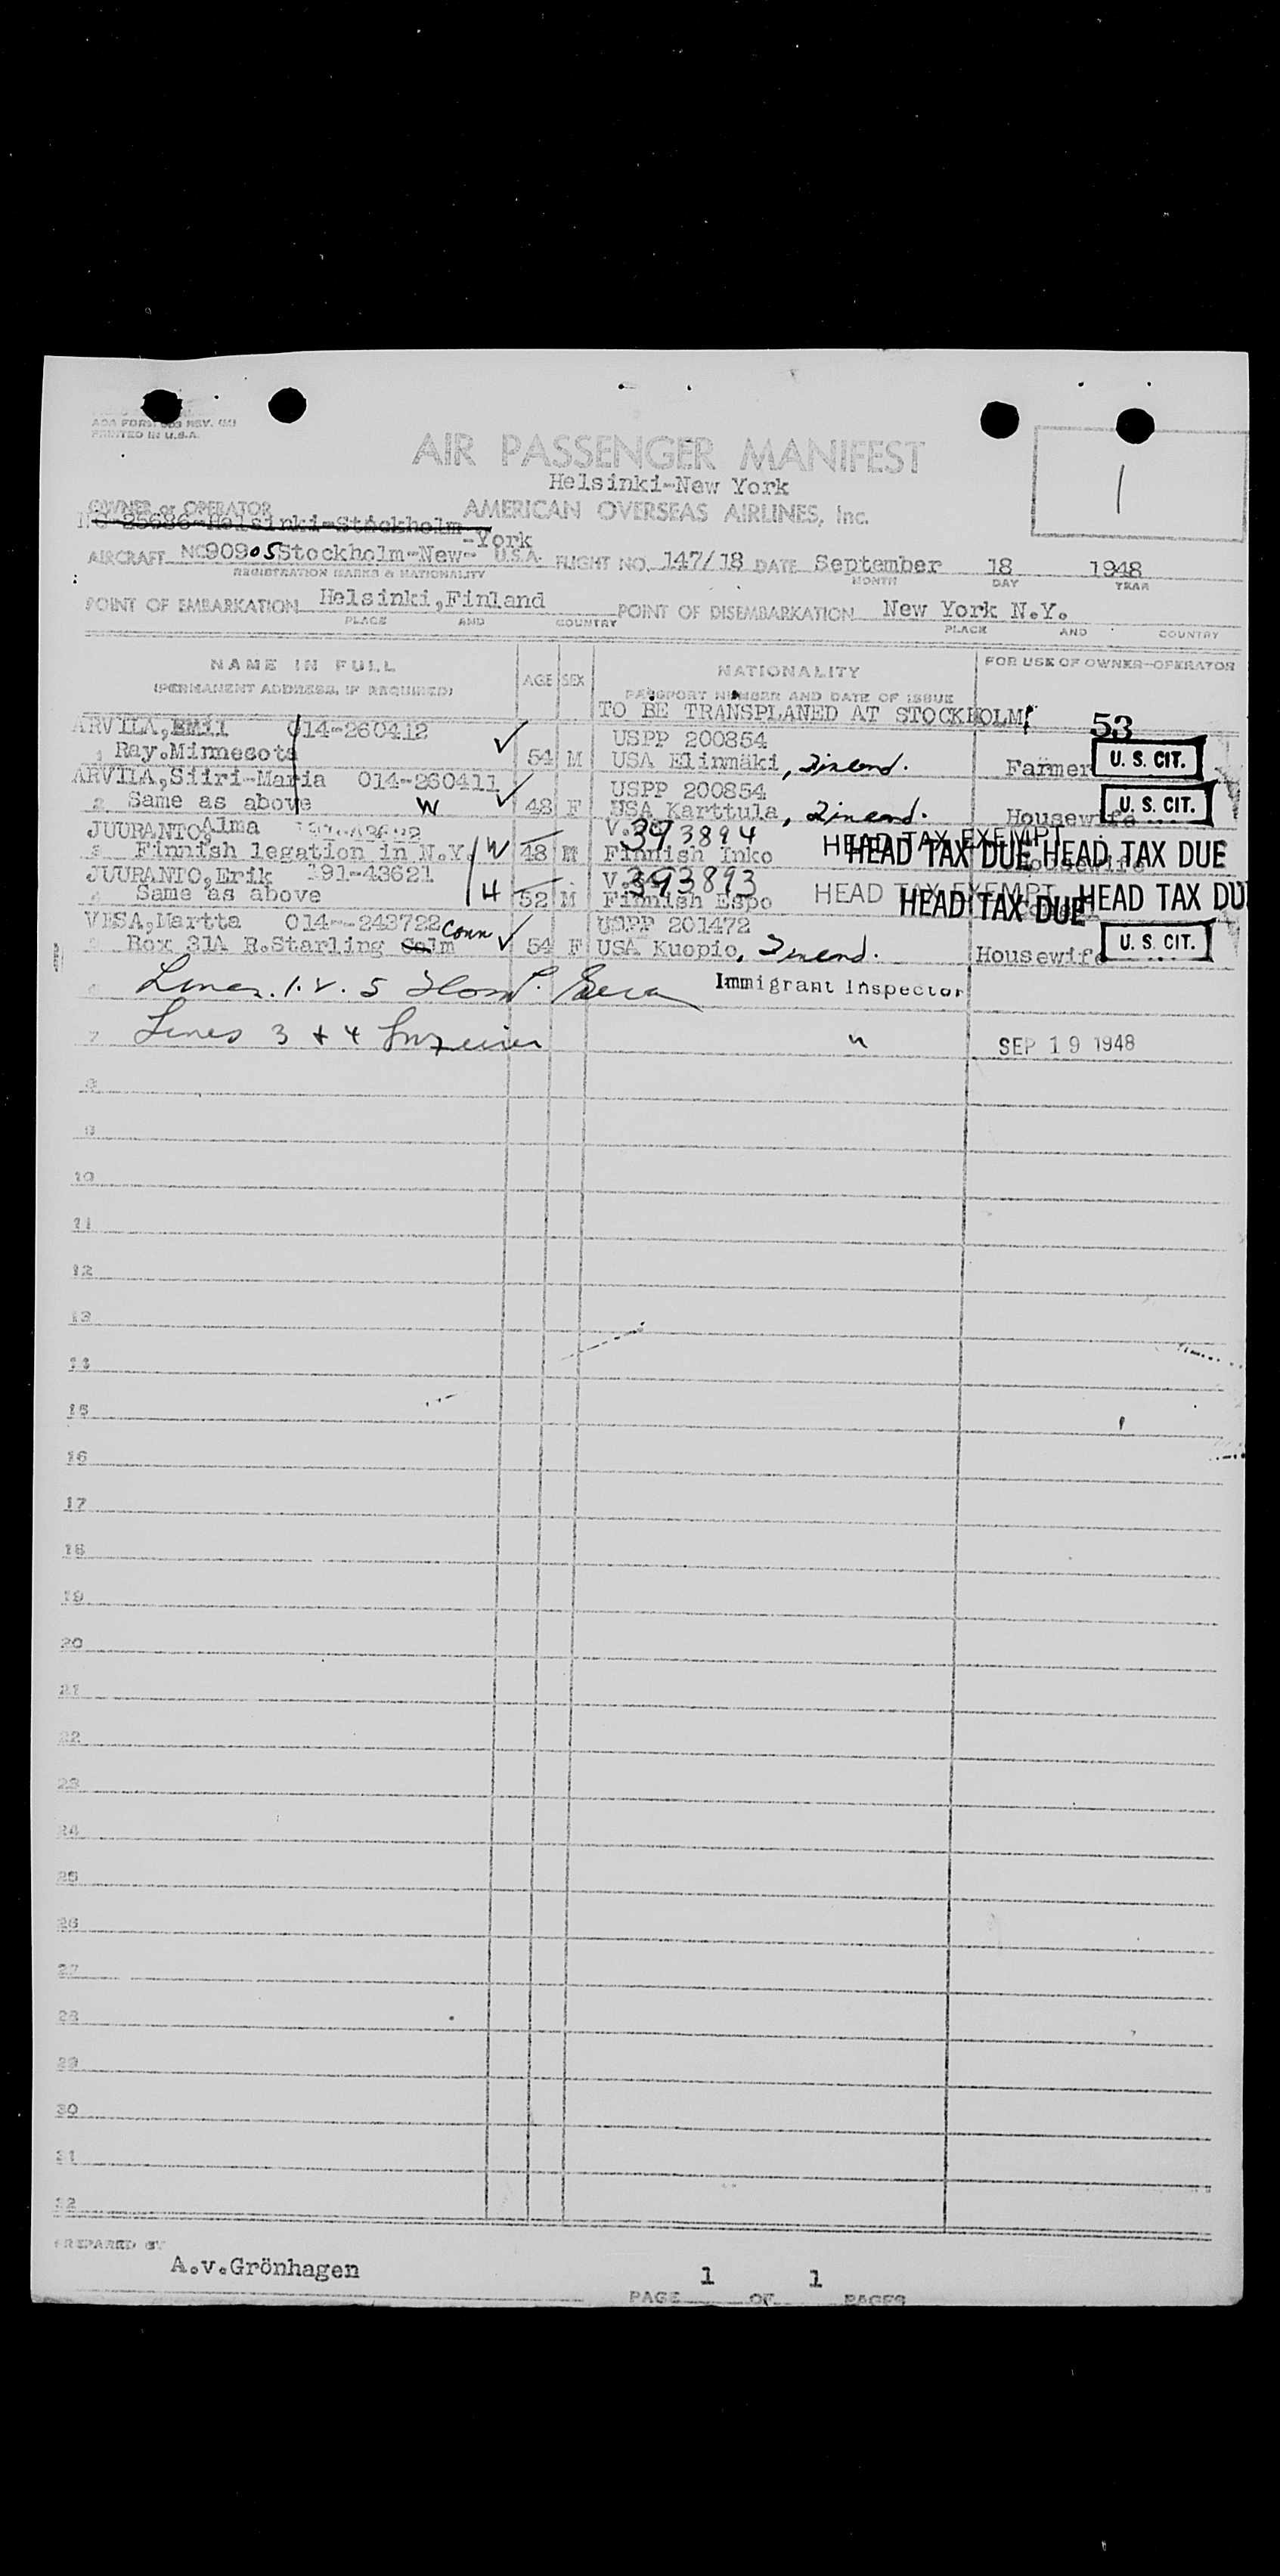 AOA FORM 603 REV.
PRINTED IN U.S.A.
AIR PASSENGER MANIFEST
Helsinki-New York
OWNER or OPERATOR AMERICAN OVERSEAS AIRLINES, Inc.
NC 25686-Helsinki-Stockholm
-York
AIRCRAFT NC90905 Stockholm-New- U.S.A. FLIGHT NO. 147/18 DATE September 18 1948
REGISTRATION MARKS & NATIONALITY MONTH DAY YEAR
POINT OF EMBARKATION Helsinki,Finland POINT OF DISEMBARKATION New York N.Y.
PLACE AND COUNTRY PLACE AND COUNTRY
NAME IN FULL AGE SEX NATIONALITY FOR USE OF OWNER-OPERATOR
(PERMANENT ADDRESS, IF REQUIRED) PASSPORT NUMBER AND DATE OF ISSUE
TO BE TRANSPLANED AT STOCKHOLM
ARVILA,Emil 014-260412 USPP 200854 53
1 Ray.Minnesota 54 M USA Elinmäki, Finland. Farmer U. S. CIT.
ARVILA,Siiri-Maria 014-260411 USPP 200854
2 Same as above W 48 F USA Karttula, Finland. Housewife U. S. CIT.
JUURANTO,Alma V. 393894 HEAD TAX EXEMPT
3 Finnish legation in N.Y. W 48 Finnish Inko HEAD TAX DUE HEAD TAX DUE Housewife
JUURANTO,Erik 191-43621 V. 393893
4 Same as above H 52 M Finnish Espo HEAD TAX EXEMPT HEAD TAX DUE HEAD TAX DU
VESA,Martta 014--243722 Conn USPP 201472
5 Box 31A R.Starling Colm 54 F USA Kuopio, Finland. Housewife U. S. CIT.
6 Lines. 1. 2. 5 Immigrant Inspector
7 Lines 3 + 4 " SEP 19 1948
8
9
10
11
12
13
14
15
16
17
18
19
20
21
22
23
24
25
26
27
28
29
30
31
32
PREPARED BY
A.v.Grönhagen
PAGE 1 OF 1 PAGES